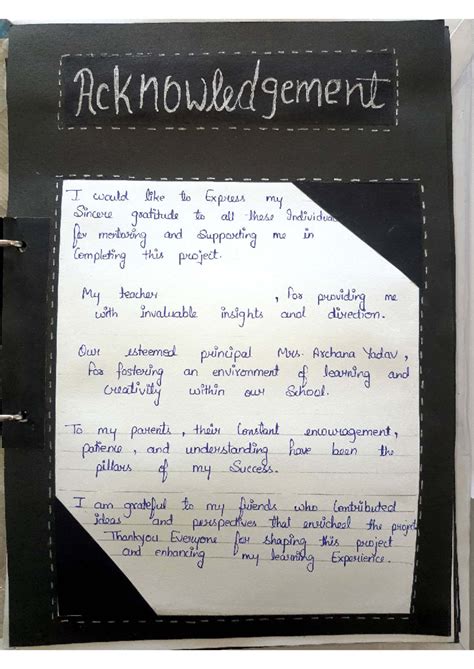 Acknowledgement
I would like to Express my
Sincere gratitude to all these Individua
for mentoring and Supporting me in
Completing this project.
My teacher , for providing me
with invaluable insights and direction.
Our esteemed principal Mrs. Archana Yadav,
For fostering an environment of learning and
Creativity within our School.
To my parents, their Constant encouragement,
patience, and understanding have been the
pillars of my Success.
I am grateful to my friends who Contributed
ideas and perspectives that enriched the project
Thankyou Everyone for shaping this project
and enhancing my learning Experience.